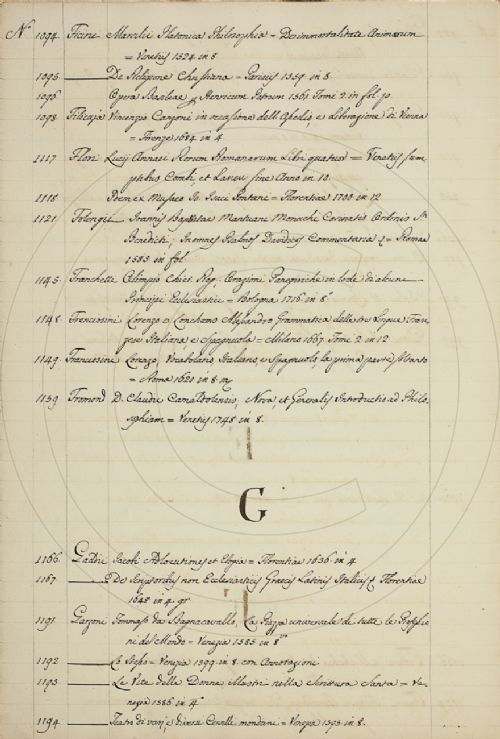 N.° 1094. Ficini Marsilii Platonica Philosophia = De immortalitate Animorum
= Venetiis 1524 in 8
1095 ——— De Religione Christiana = Parisiis 1559 in 8.
1096 Opera Basileae Henricum Petrum 1561 Tomi 2. in fol.
1098 Filicaja Vincenzio Canzoni in occasione dell'Assedio, e Liberazione di Vienna
= Firenze 1684 in 4
1117 Flori Lucij Annaei Rerum Romanarum Libri quatuor = Venetiis sum
ptibus Combi, et Lanou sine Anno in 10.
1118 Poemes Museo Florentiae in 12
1121 Folengii Joannis Baptistae Mantuani Monachi Cassinatis Ordinis S.
Benedicti; In omnes Psalmos Davidicos Commentaria = Romae
1585 in fol.
1145. Franchetti Olimpio Chier. Reg. Orazioni Panegiriche in lode di alcuni
Principi Ecclesiastici = Bologna 1716 in 8
1148. Franciosini Lorenzo e Alejandro Grammatica delle tre Lingue Fran
zese Italiana e Spagnuola = Milano 1667 Tomi 2 in 12
1149. Franciosini Lorenzo, Vocabolario Italiano, e Spagnuolo, la prima parte
= Roma 1620 in 8.
1159 Fromond D. Claudii Camaldolensis, Nova, et Generalis Introductio ad Philo-
sophiam = Venetiis 1748 in 8.
G
1166. Gaddii Jacobi Adlocutiones et Elogia = Florentiae 1636 in 4
1167 ——— De Scriptoribus non Ecclesiasticis Graecis Latinis Italicis Florentiae
1648 in 4.
1191 Garzoni Tommaso da Bagnacavallo, La Piazza universale di tutte le Professio
ni del Mondo = Venezia 1585 in 8.
1192 ——— Lo Stesso = Venezia 1599 in 8. con Annotazioni
1193 ——— Le Vite delle Donne Illustri nella Scrittura Santa = Ve-
nezia 1586 in 4
1194 ——— Teatro di varj, e diversi Cervelli mondani = Venezia 1595 in 8.